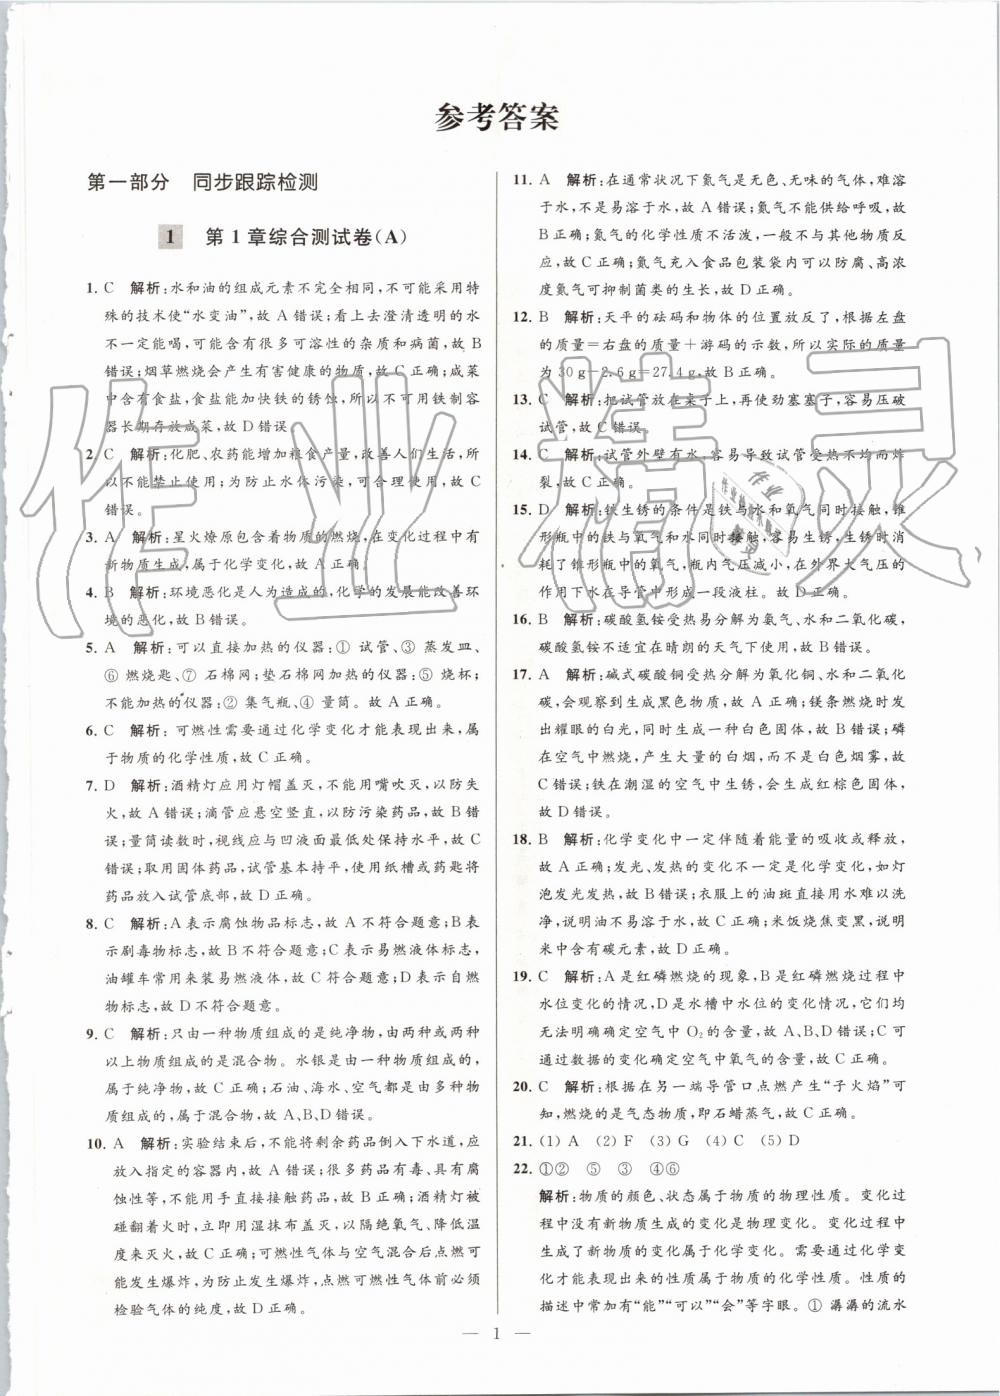 参考答案
第一部分 同步跟踪检测
1 第1章综合测试卷(A)
1. C 解析:水和油的组成元素不完全相同,不可能采用特
殊的技术使“水变油”,故A错误;看上去澄清透明的水
不一定能喝,可能含有很多可溶性的杂质和病菌,故B
错误;烟草燃烧会产生有害健康的物质,故C正确;咸菜
中含有食盐,食盐能加快铁的锈蚀,所以不可用铁制容
器长期存放咸菜,故D错误。
2. C 解析:化肥、农药能增加粮食产量,改善人们生活,所
以不能禁止使用;为防止水体污染,可合理使用,故C
错误。
3. A 解析:星火燎原包含着物质的燃烧,在变化过程中有
新物质生成,属于化学变化,故A正确。
4. B 解析:环境恶化是人为造成的,化学的发展能改善环
境的恶化,故B错误。
5. A 解析:可以直接加热的仪器:① 试管、③ 蒸发皿、
⑥ 燃烧匙、⑦ 石棉网;垫石棉网加热的仪器:⑤ 烧杯;
不能加热的仪器:② 集气瓶、④ 量筒。故A正确。
6. C 解析:可燃性需要通过化学变化才能表现出来,属
于物质的化学性质,故C正确。
7. D 解析:酒精灯应用灯帽盖灭,不能用嘴吹灭,以防失
火,故A错误;滴管应悬空竖直,以防污染药品,故B错
误;量筒读数时,视线应与凹液面最低处保持水平,故C
错误;取用固体药品,试管基本持平,使用纸槽或药匙将
药品放入试管底部,故D正确。
8. C 解析:A表示腐蚀物品标志,故A不符合题意;B表
示剧毒物标志,故B不符合题意;C表示易燃液体标志,
油罐车常用来装易燃液体,故C符合题意;D表示自燃
物标志,故D不符合题意。
9. C 解析:只由一种物质组成的是纯净物,由两种或两种
以上物质组成的是混合物。水银是由一种物质组成的,
属于纯净物,故C正确;石油、海水、空气都是由多种物
质组成的,属于混合物,故A、B、D错误。
10. A 解析:实验结束后,不能将剩余药品倒入下水道,应
放入指定的容器内,故A错误;很多药品有毒、具有腐
蚀性等,不能用手直接接触药品,故B正确;酒精灯被
碰翻着火时,立即用湿抹布盖灭,以隔绝氧气、降低温
度来灭火,故C正确;可燃性气体与空气混合后点燃可
能发生爆炸,为防止发生爆炸,点燃可燃性气体前必须
检验气体的纯度,故D正确。
11. A 解析:在通常状况下氮气是无色、无味的气体,难溶
于水,不是易溶于水,故A错误;氮气不能供给呼吸,故
B正确;氮气的化学性质不活泼,一般不与其他物质反
应,故C正确;氮气充入食品包装袋内可以防腐、高浓
度氮气可抑制菌类的生长,故D正确。
12. B 解析:天平的砝码和物体的位置放反了,根据左盘
的质量=右盘的质量+游码的示数,所以实际的质量
为30 g-2.6 g=27.4 g,故B正确。
13. C 解析:把试管放在桌子上,再使劲塞塞子,容易压破
试管,故C错误。
14. C 解析:试管外壁有水,容易导致试管受热不均而炸
裂,故C正确。
15. D 解析:铁生锈的条件是铁与水和氧气同时接触,锥
形瓶中的铁与氧气和水同时接触,容易生锈,生锈时消
耗了锥形瓶中的氧气,瓶内气压减小,在外界大气压的
作用下水在导管中形成一段液柱。故D正确。
16. B 解析:碳酸氢铵受热易分解为氨气、水和二氧化碳,
碳酸氢铵不应该在晴朗的天气下使用,故B正确。
17. A 解析:碱式碳酸铜受热分解为氧化铜、水和二氧化
碳,会观察到生成黑色物质,故A正确;镁条燃烧时发
出耀眼的白光,同时生成一种白色固体,故B错误;磷
在空气中燃烧,产生大量的白烟,而不是白色烟雾,故
C错误;铁在潮湿的空气中生锈,会生成红棕色固体,
故D错误。
18. B 解析:化学变化中一定伴随着能量的吸收或释放,
故A正确;发光、发热的变化不一定是化学变化,如灯
泡发光发热,故B错误;衣服上的油斑直接用水难以洗
净,说明油不易溶于水,故C正确;米饭烧焦变黑,说明
米中含有碳元素,故D正确。
19. C 解析:A是红磷燃烧的现象,B是红磷燃烧过程中
水位变化的情况,D是水槽中水位的变化情况,它们均
无法明确确定空气中O₂的含量,故A、B、D错误;C可
通过数据的变化确定空气中氧气的含量,故C正确。
20. C 解析:根据在另一端导管口点燃产生“子火焰”可
知,燃烧的是气态物质,即石蜡蒸气,故C正确。
21. (1) A (2) F (3) G (4) C (5) D
22. ①② ⑤ ③ ④⑥
解析:物质的颜色、状态属于物质的物理性质。变化过
程中没有新物质生成的变化是物理变化。变化过程中
生成了新物质的变化属于化学变化。需要通过化学变
化才能表现出来的性质属于物质的化学性质。性质的
描述中常加有“能”“可以”“会”等字眼。① 潺潺的流水
— 1 —
作业精灵